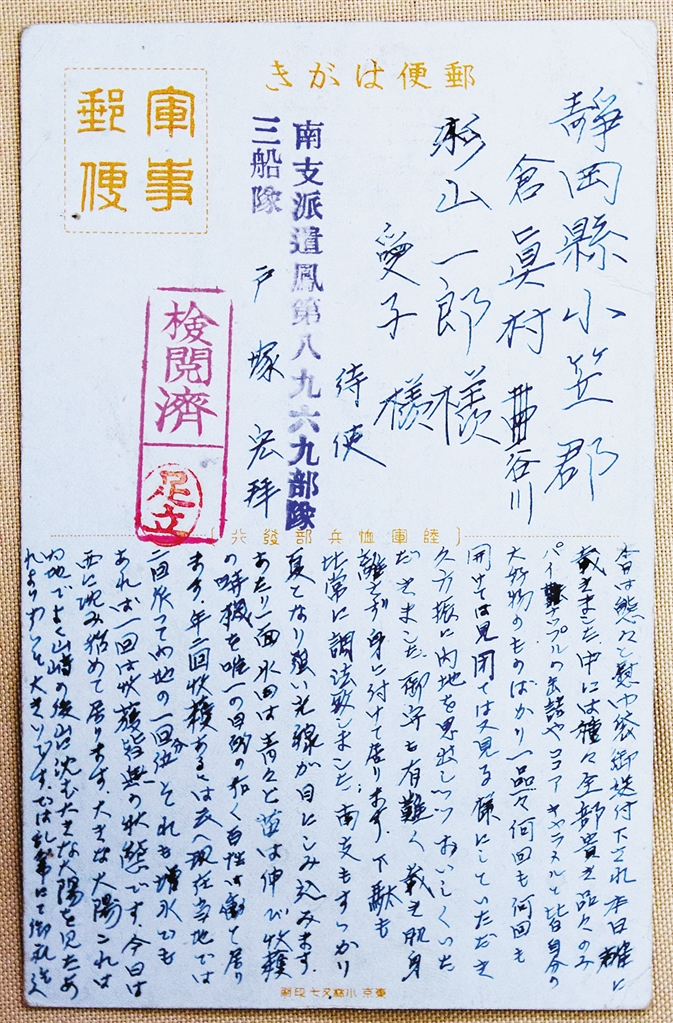 郵便はがき
軍事
郵便
静岡縣小笠郡
倉眞村
杉山一郎様
愛子様
待史
南支派遣鳳第八九六九部隊
三船隊
戸塚宏拜
検閲済
足立
(陸軍恤兵部發行)
今日は態々と慰问袋御送付下され本日確に
戴きました、中には種々全部貴き品々のみ
パイナップルの缶詰やココアキャラメルと皆自分の
大好物のものばかり一品々何回も何回も
開けては見閉ては又見る様にしていただき
久方振に内地を思出しつつおいしくいた
だきました、御守も有難く戴き肌身
離さず身に付けて居ります、下駄も
非常に調法致しました、南支もすっかり
夏となり強い光線が目にしみ込みます、
あたり一面水田は青々と苗は伸び收穫
の時機を唯一の目的の如く百姓は働て居り
ます、年二回收穫あるとは云へ現在当地では
二回作って内地の一回分位それも増水でも
あれば一回は收穫皆無の状態です、今日は
西に沈み始めて居ります、大きな太陽これは
内地でよく山崎の後山に沈む大きな太陽を見たが
れよりずっと大きいです、では乱筆にて御礼迄
東京 小林又七印刷